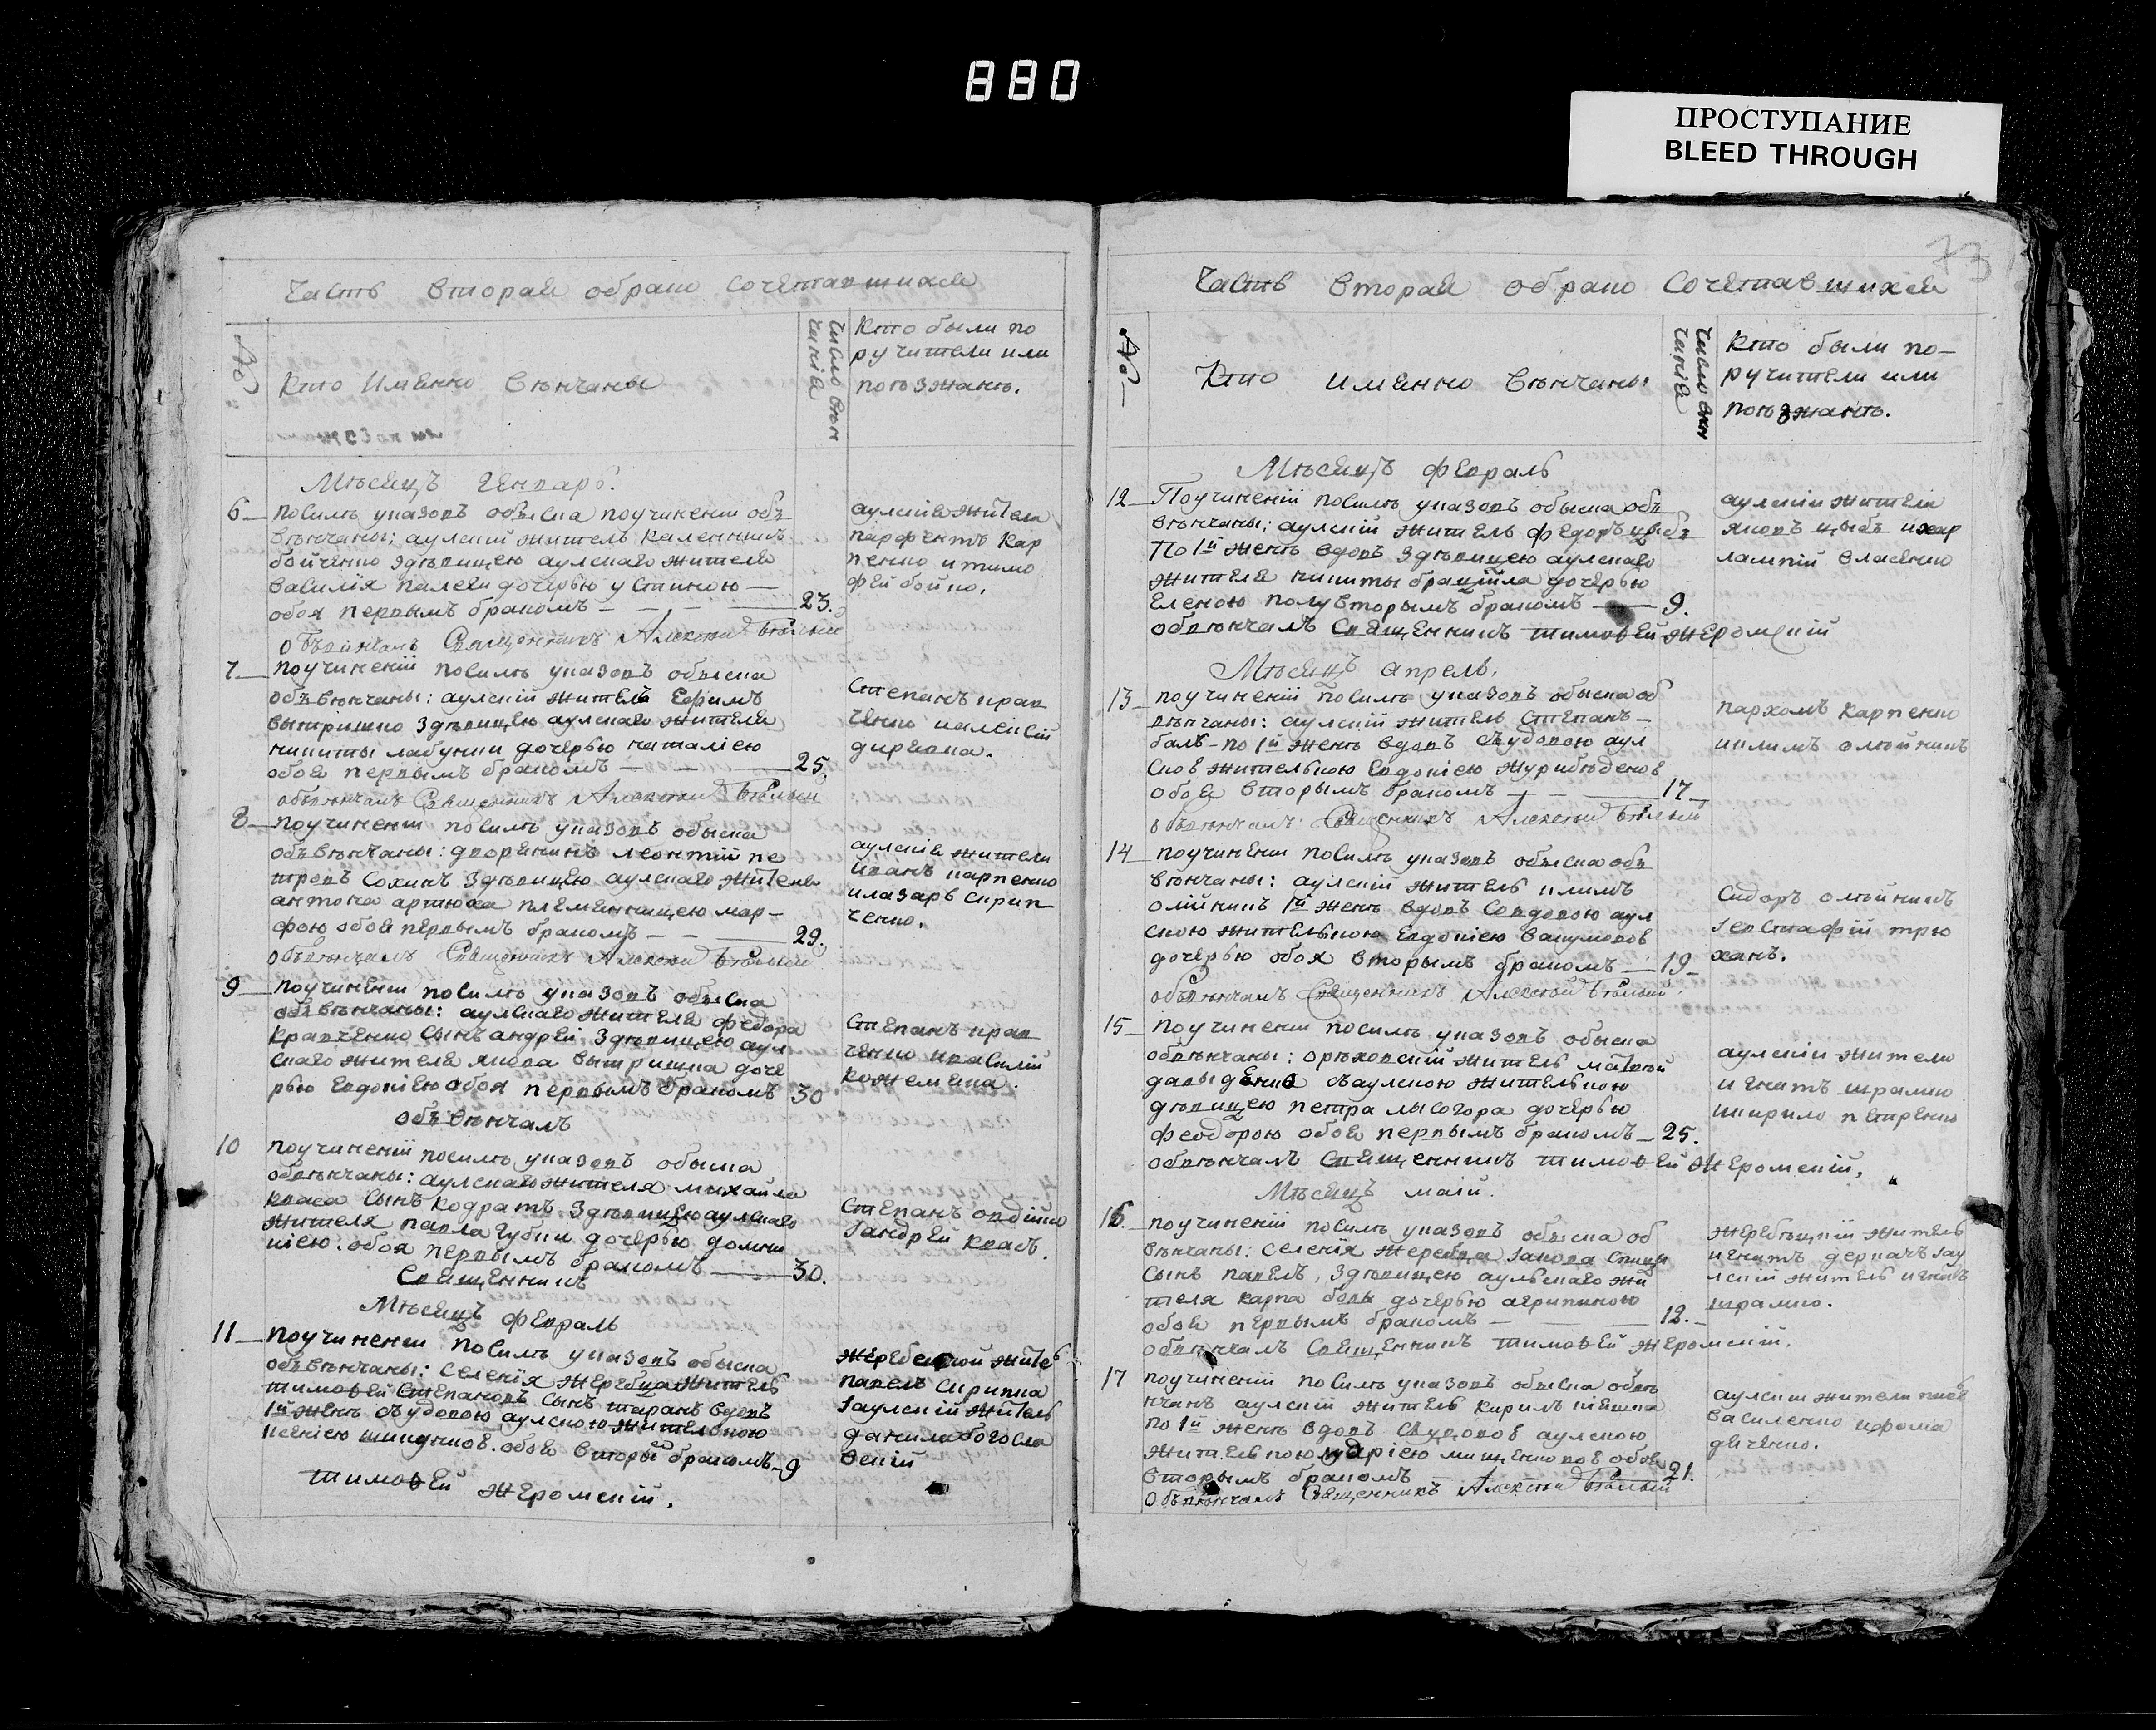 880
ПРОСТУПАНИЕ
BLEED THROUGH
Часть вторая обрако сочетавшихся
№
Кто Имѣнно вѣнчаны
число вѣн
чанія
Кто были по
ручители или
поѣзжанѣ.
Мѣсяцъ Генварь.
6 посилѣ указовъ обыска поучинении объ
вѣнчаны: аулскій житель
бойченко здѣвицею аулскаго жителя
василія палея дочерью устиною
обоя первымъ бракомъ 23.
Объвѣнчалъ Священникъ Алексѣй Бѣлый
аулскія жители
парфентъ кар
пенко итимо
фей бойко.
7 поучиненіи посилѣ указовъ обыска
объвѣнчаны: аулскій житель Ефимъ
вытришко здѣвицею аулскаго жителя
никиты лабунки дочерью наталіею
обоя первымъ бракомъ 25.
объвѣнчалъ Священникъ Алексѣй Бѣлый
Степанъ крав
ченко иалексій
диревка.
8 поучинении посилѣ указовъ обыска
объвѣнчаны: дворянинъ леонтий пе
тровъ Сохинъ здѣвицею аулскаго жителя
антона артюха племенницею мар-
фою обоя первымъ бракомъ 29.
объвѣнчалъ Священникъ Алексѣй Бѣлый
аулскія жители
иванъ карпенко
илазаръ скрип
ченко.
9 поучинении посилѣ указовъ обыска
объвѣнчаны: аулскаго жителя федора
кравченко сынъ андрей здѣвицею аул
скаго жителя якова вытришка доче
рью Евдокіею обоя первымъ бракомъ 30
объвѣнчалъ
Степанъ крав
ченко ивасилій
кожемяка.
10 поучиненіи посилѣ указовъ обыска
обвѣнчаны: аулскаго жителя михайла
кваса сынъ кодратъ здѣвицею аулскаго
жителя павла губки дочерью домни
кіею: обоя первымъ бракомъ 30.
Священникъ
Степанъ овдійко
Iандрей квасъ.
Мѣсяцъ февраль
11 поучинении посилѣ указовъ обыска
объвѣнчаны: селенія жеребца житель
тимофей Степановъ сынъ таранъ вдовъ
1й женѣ съудовою аулскою жителькою
обоя вторы бракомъ 9
тимофей жеромскій.
житель
павелъ скрипка
Iаулскій житель
данила богосла
вскій
73
Часть вторая обрако сочетавшихся
№
Кто имѣнно вѣнчаны
число вѣн
чанія
Кто были по-
ручители или
поѣзжанѣ.
Мѣсяцъ февраль
12 Поучиненіи посилѣ указовъ обыска объ
вѣнчаны: аулскій житель федоръ цыбъ
По 1й женѣ вдовъ здѣвицею аулскаго
жителя никиты дочерью
Еленою полувторымъ бракомъ 9.
обвѣнчалъ Священникъ тимофей жеромскій
аулскіи жители
яковъ цыбъ ихар
лампій власенко
Мѣсяцъ апрель.
13 поучиненіи посилѣ указовъ обыска об
вѣнчаны: аулскій житель Степанъ
балъ по 1й женѣ вдовъ съудовою аул
ской жителькою Евдокіею
обоя вторымъ бракомъ 17
объвѣнчалъ Священникъ Алексѣй Бѣлый
пархомъ карпенко
иклимъ олѣйникъ
14 поучинении посилѣ указовъ обыска объ
вѣнчаны: аулскій житель климъ
олійникъ 1й женѣ вдовъ Совдовою аул
скою жителькою Евдокіею
дочерью обоя вторымъ бракомъ 19
объвѣнчалъ Священникъ Алексѣй Бѣлый.
Сидоръ олѣйникъ
Iевстафій трю
ханъ.
15 поучинении посилѣ указовъ обыска
обвѣнчаны: орѣховскій житель матвѣй
давыденко съаулскою жителькою
дѣвицею петра лысогора дочерью
феодорою обоя первымъ бракомъ 25.
обвѣнчалъ Священникъ тимофей жеромскій.
аулскіи жители
игнатъ шрамко
икирило петренко
Мѣсяцъ маій.
16 поучиненіи посилѣ указовъ обыска об
вѣнчаны: селенія жеребца Iакова
сынъ павелъ, здѣвицею аульскаго жи
теля карпа дочерью агрипиною
обоя первымъ бракомъ 12.
обвѣнчалъ Священникъ тимофей жеромскій.
житель
игнатъ деркачъ Iау
лскій житель игнатъ
шрамко.
17 поучиненіи посилѣ указовъ обыска обвѣ
нчанъ аулскій житель кирилъ
по 1й женѣ вдовъ аулскою
жителькою марією мищенковой обоя
вторымъ бракомъ 21.
Объвѣнчалъ Священникъ Алексѣй Бѣлый
аулскіи жители
василенко ифома
дяченко.